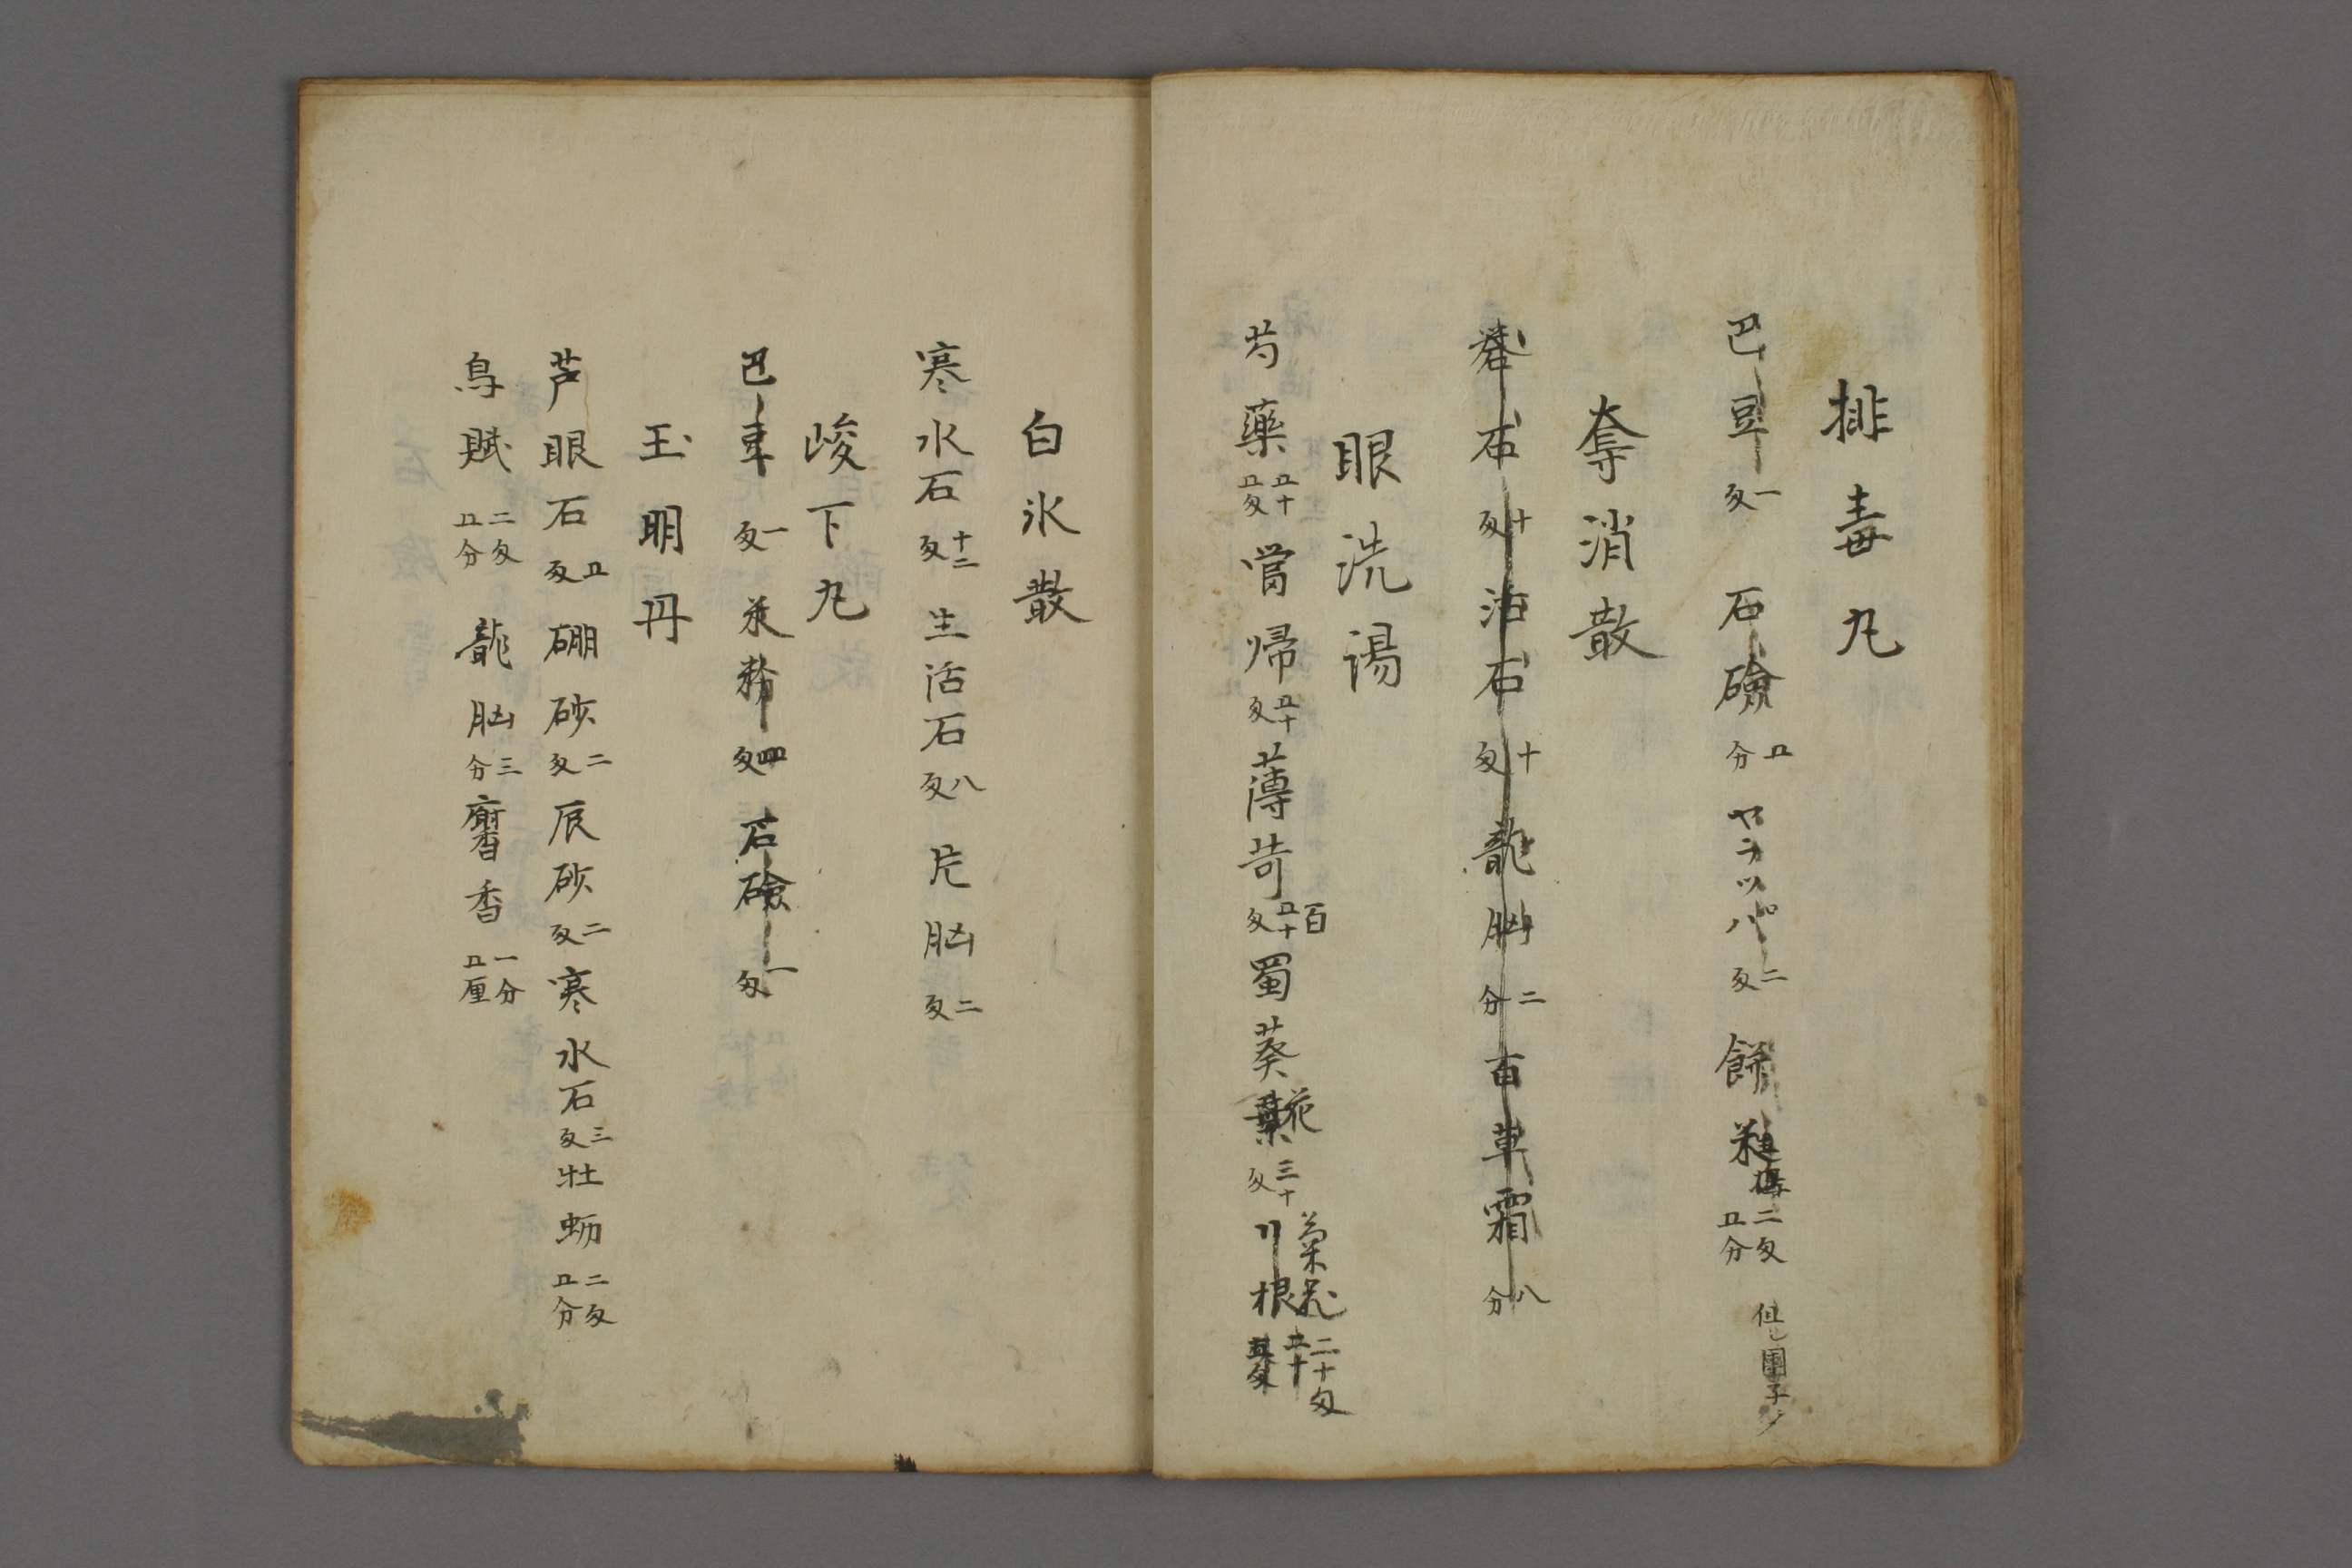 排毒丸
巴豆 一匁 石礆 五分 ヤラッパ 二匁 餅 二匁五分 但シ團子ノ
奪消散
石 十匁 活石 十匁 龍脳 二分 百草霜 八分
眼洗湯
芍藥 五十五匁 當帰 五十匁 薄苛 百五十匁 蜀葵花 三十匁 川根 菊花 二十匁
白氷散
寒水石 十二匁 生活石 八匁 片脳 二匁
峻下丸
巴豆 一匁 粉 四匁 石礆 一匁
玉明丹
芦眼石 五匁 硼砂 二匁 辰砂 二匁 寒水石 三匁 牡蛎 二匁五分
烏賊 二匁五分 龍脳 三分 麝香 一分五厘